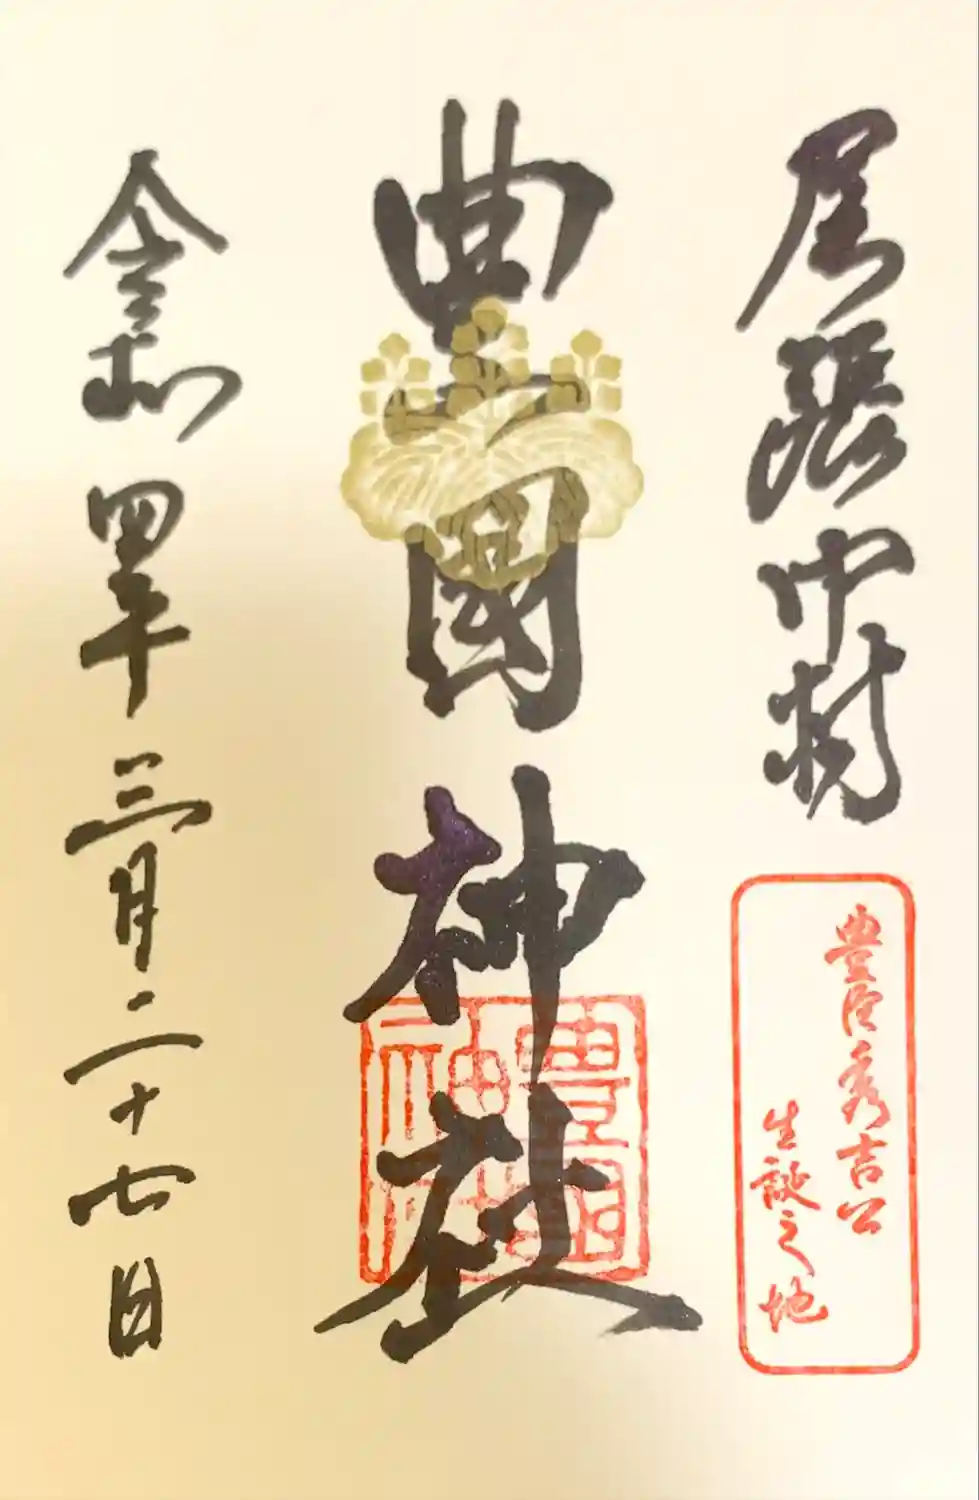 尾張中村
豊臣秀吉公
生誕之地
豊國神社
豊國
神社
令和四年三月二十七日